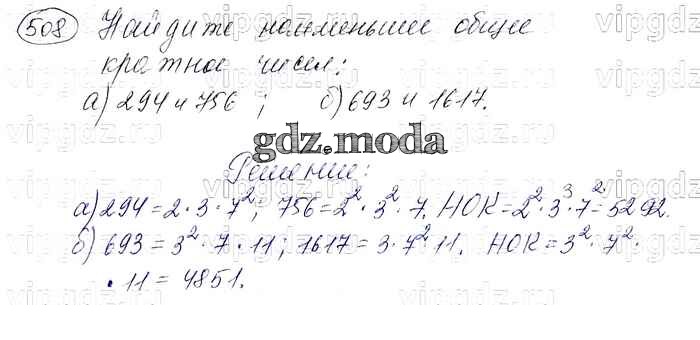 508 Найдите наименьшее общее
кратное чисел:
а) 294 и 756 ; б) 693 и 1617.
gdz.moda
Решение:
а) 294 = 2 · 3 · 7²; 756 = 2² · 3² · 7. НОК = 2² · 3³ · 7² = 5292.
б) 693 = 3² · 7 · 11; 1617 = 3 · 7² 11. НОК = 3² · 7² ·
· 11 = 4851.